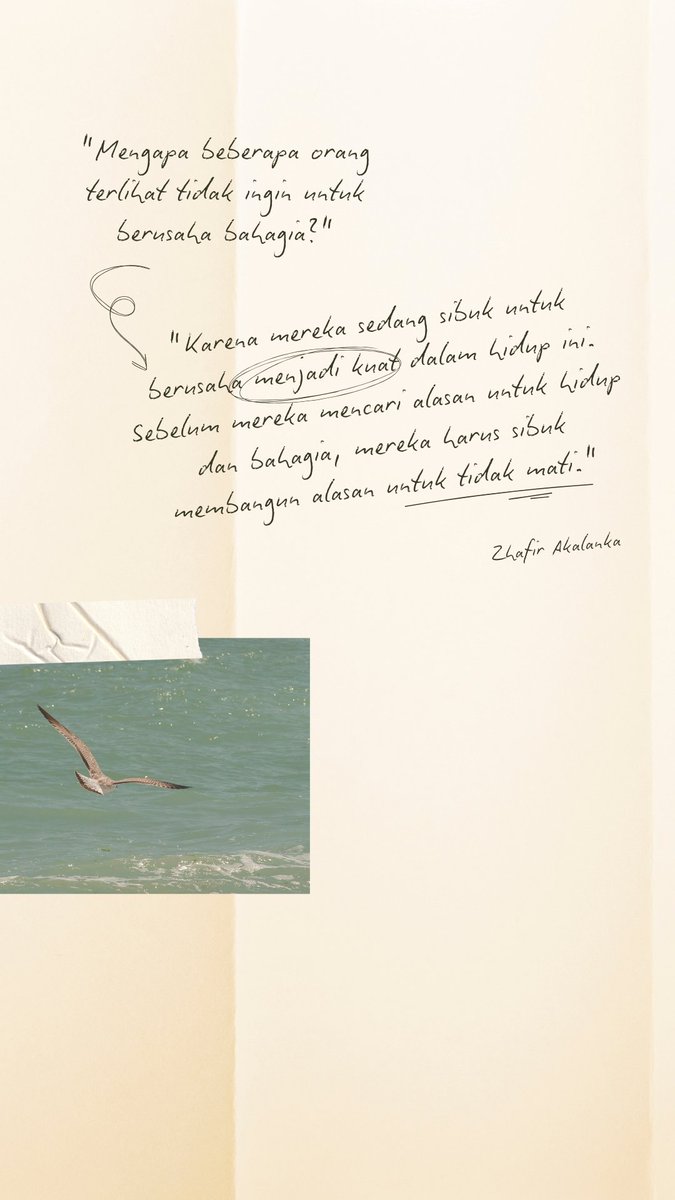 "Mengapa beberapa orang
terlihat tidak ingin untuk
berusaha bahagia?"
"Karena mereka sedang sibuk untuk
berusaha menjadi kuat dalam hidup ini.
Sebelum mereka mencari alasan untuk hidup
dan bahagia, mereka harus sibuk
membangun alasan untuk tidak mati."
Zhafir Akalanka